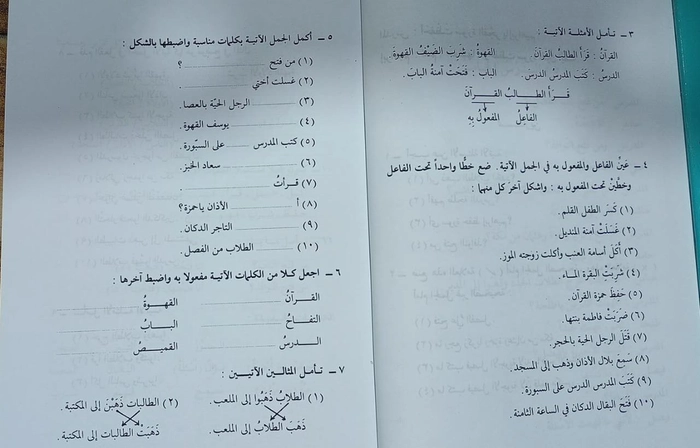 ٣ - تأمل الأمثلة الآتية :
القرآنُ : قرأ الطالبُ القرآنَ. القهوةُ : شربَ الضيْفُ القهوةَ.
الدرسُ : كتبَ المدرسُ الدرسَ. البابُ : فتحَتْ آمنةُ البابَ.
قــرأ الطــالبُ القــرآنَ
الفاعلُ المفعولُ بِهِ
٤ - عيّنْ الفاعل والمفعول به في الجمل الآتية. ضع خطًّا واحداً تحت الفاعل
وخطَّيْن تحت المفعول به : واشكل آخرَ كل منهما :
(١) كسرَ الطفل القلم.
(٢) غَسلَتْ آمنة المنديل.
(٣) أكلَ أسامة العنب وأكلت زوجته الموز.
(٤) شرِبَتْ البقرة المـاء.
(٥) حفِظَ حمزة القرآن.
(٦) ضرَبَتْ فاطمة بنتها.
(٧) قتَلَ الرجل الحية بالحجر.
(٨) سَمِعَ بلال الأذان وذهب إلى المسجد.
(٩) كتَبَ المدرس الدرس على السبورة.
(١٠) فتَحَ البقال الدكان في الساعة الثامنة.
٥ - أكمل الجمل الآتية بكلمات مناسبة واضبطها بالشكل :
(١) من فتح ؟
(٢) غسلت أختي .
(٣) الرجل الحيّة بالعصا.
(٤) يوسف القهوة.
(٥) كتب المدرس على السبّورة.
(٦) سعاد الخبز.
(٧) قــرأتُ .
(٨) أ الأذان ياحمزة؟
(٩) التاجر الدكان.
(١٠) الطلاب من الفصل.
٦ - اجعل كلا من الكلمات الآتية مفعولا به واضبط آخرها :
القــرآنُ القهــوةُ
التفــاحُ البــابُ
الــدرسُ القميــصُ
٧ - تأمل المثالين الآتيين :
(١) الطلابُ ذهَبُوا إلى الملعب. (٢) الطالبات ذَهَبْنَ إلى المكتبة.
ذهَبَ الطلابُ إلى الملعب. ذهبَتْ الطالبات إلى المكتبة.